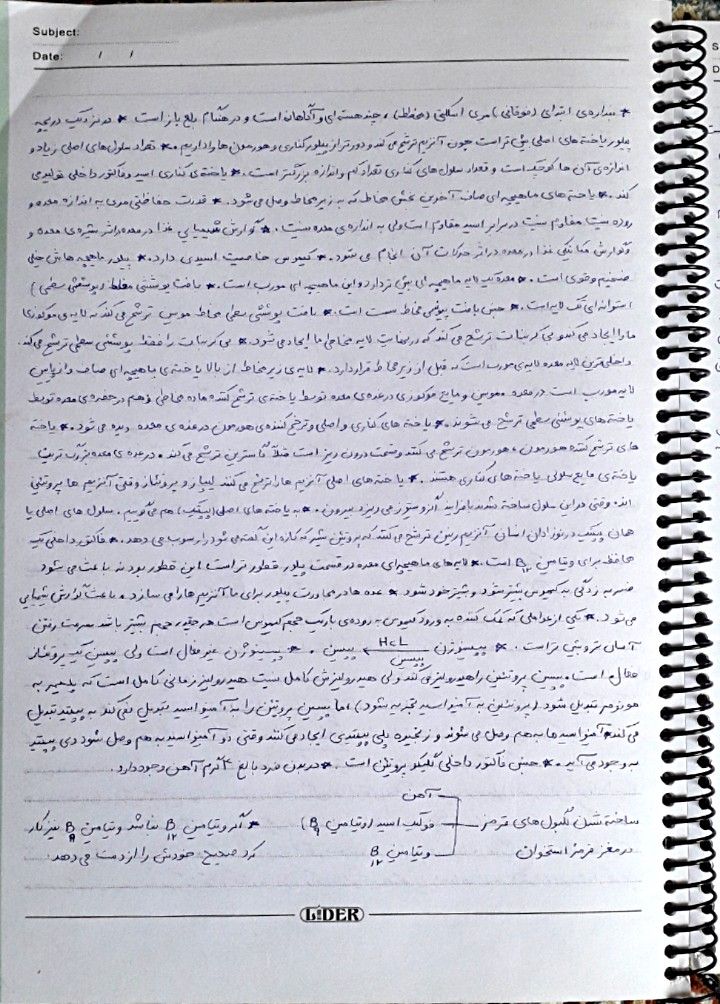 Subject:
Date: / /
★ دیواره‌ی ابتدای (فوقانی) مری اسکلتی (مخطط)، چند هسته‌ای و آگاهانه است و در هنگام بلع باز است. ★ در نزدیک دریچه
پیلور یاخته‌های اصلی بیش‌تر است چون آنزیم ترشح می‌کند و دورتر از پیلور کناری و هورمون‌ها را داریم. ★ تعداد سلول‌های اصلی زیاد و
اندازه‌ی آن‌ها کوچیک است و تعداد سلول‌های کناری تعداد کم و اندازه بزرگتر است. ★ یاخته‌ی کناری اسید و فاکتور داخلی تولید می
کند. ★ یاخته‌های ماهیچه‌ای صاف آخرین بخش مخاط که به زیر مخاط وصل می‌شود. ★ قدرت حفاظتی مری به اندازه معده و
روده نیست مقاوم نیست در برابر اسید مقاوم است ولی به اندازه‌ی معده نیست. ★ گوارش شیمیایی غذا در معده در اثر شیره‌ی معده و
گوارش مکانیکی غذا در معده در اثر حرکات آن انجام می‌شود. ★ کیموس خاصیت اسیدی دارد. ★ پیلور ماهیچه هاش خیلی
ضخیم و قوی است. ★ معده یک لایه ماهیچه‌ای بیش‌تر دارد و این ماهیچه‌ای مورب است. ★ بافت پوششی مخاط (پوششی سطحی)
استوانه‌ای تک لایه است. ★ جنس بافت پوششی مخاط سست است. ★ بافت پوششی سطحی مخاط موسین ترشح می‌کند که لایه‌ی موکوزی
ما را ایجاد می‌کند و بی‌کربنات ترشح می‌کند که در نهایت لایه مخاطی ما ایجاد می‌شود. ★ بی‌کربنات را فقط پوششی سطحی ترشح می‌کند
داخلی‌ترین لایه معده لایه‌ی مورب است که قبل از زیر مخاط قرار دارد. ★ لایه‌ی زیر مخاط از بالا یاخته‌ی ماهیچه‌ای صاف و از پایین
لایه مورب است در معده. ★ موسین و مایع موکوزی در غده‌ی معده توسط یاخته‌ی ترشح کننده ماده مخاطی و هم در حفره‌ی معده توسط
یاخته‌های پوششی سطحی ترشح می‌شوند. ★ یاخته‌های کناری و اصلی و ترشح کننده‌ی هورمون در غده‌ی معده دیده می‌شود. ★ یاخته
های ترشح کننده هورمون، هورمون ترشح می‌کنند و قسمت درون ریز است مثلاً گاسترین ترشح می‌کند. در غده‌ی معده بزرگ ترین
یاخته‌ی مایع سلولی یاخته‌های کناری هستند. ★ یاخته‌های اصلی آنزیم‌ها را ترشح می‌کنند لیپاز و پروتئاز وقتی آنزیم‌ها پروتئینی
اند وقتی در این سلول ساخته شدند با فرایند اگزوسیتوز می‌ریزد بیرون. ★ به یاخته‌های اصلی (پپتیک) هم می‌گوییم. سلول‌های اصلی یا
همان پپتیک در نوزادان انسان آنزیم رنین ترشح می‌کنند که پروتئین شیر که کازئین گفته می‌شود را رسوب می‌دهد. ★ فاکتور داخلی یک
محافظ برای ویتامین B۱۲ است. ★ لایه‌های ماهیچه‌ای معده در قسمت پیلور قطورتر است این قطور بودنه باعث می‌شود
ضربه زدگی به کیموس بیشتر شود و شیرتر خود شود. ★ غده‌ها در مجاورت پیلور برای ما آنزیم‌ها را می‌سازد. ★ باعث گوارش شیمیایی
می‌شود. ★ یکی از عواملی که کمک کننده به ورود کیموس به روده‌ی باریک حجم کیموس است هرچقدر حجم بیشتر باشد سرعت رفتن
آسان تر و بیش‌تر است. ★ پپسینوژن HCl پپسین پپسین. ★ پپسینوژن غیرفعال است ولی پپسین یک پروتئاز
فعال است. پپسین پروتئین را هیدرولیز می‌کند ولی هیدرولیزش کامل نیست هیدرولیز زمانی کامل است که پلیمر به
مونومر تبدیل شود. (پروتئین به آمینواسید تجزیه بشود) اما پپسین پروتئین را به آمینواسید تبدیل نمی‌کند به پپتید تبدیل
می‌کند. ★ آمینواسیدها به هم وصل می‌شوند و زنجیره پلی پپتیدی ایجاد می‌کنند وقتی دو آمینواسید به هم وصل شود دی پپتید
به وجود می‌آید. ★ جنس فاکتور داخلی گلیکوپروتئین است. ★ در بدن فرد بالغ ۴ گرم آهن وجود دارد.
آهن
ساخته شدن گلبول‌های قرمز فولیک اسید (ویتامین B۹) ★ اگر ویتامین B۱۲ نباشد ویتامین B۹ نیز کار
در مغز قرمز استخوان ویتامین B۱۲ کرد صحیح خودش را از دست می‌دهد.
LIDER